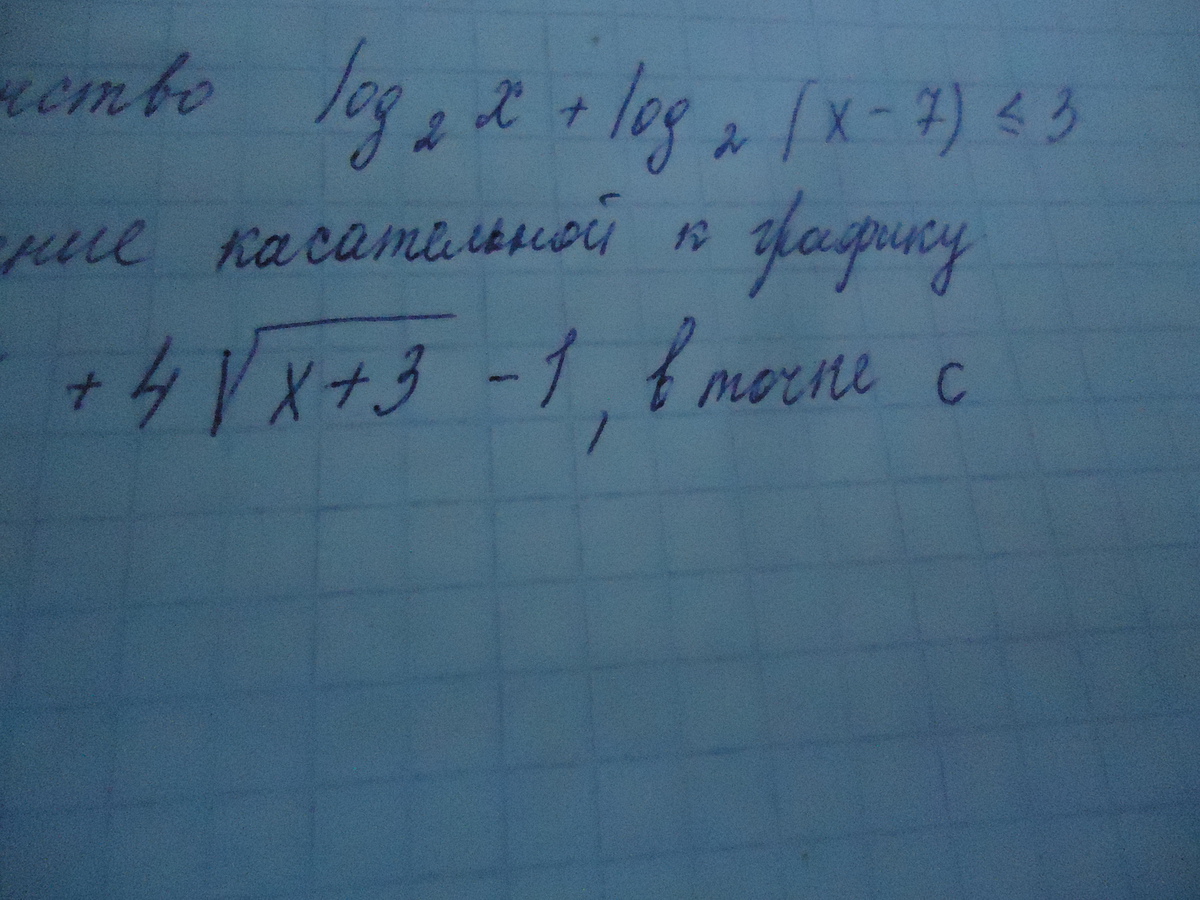 нство log₂ x + log₂ (x - 7) ≤ 3
ние касательной к графику
+ 4√(x+3) - 1, в точке с